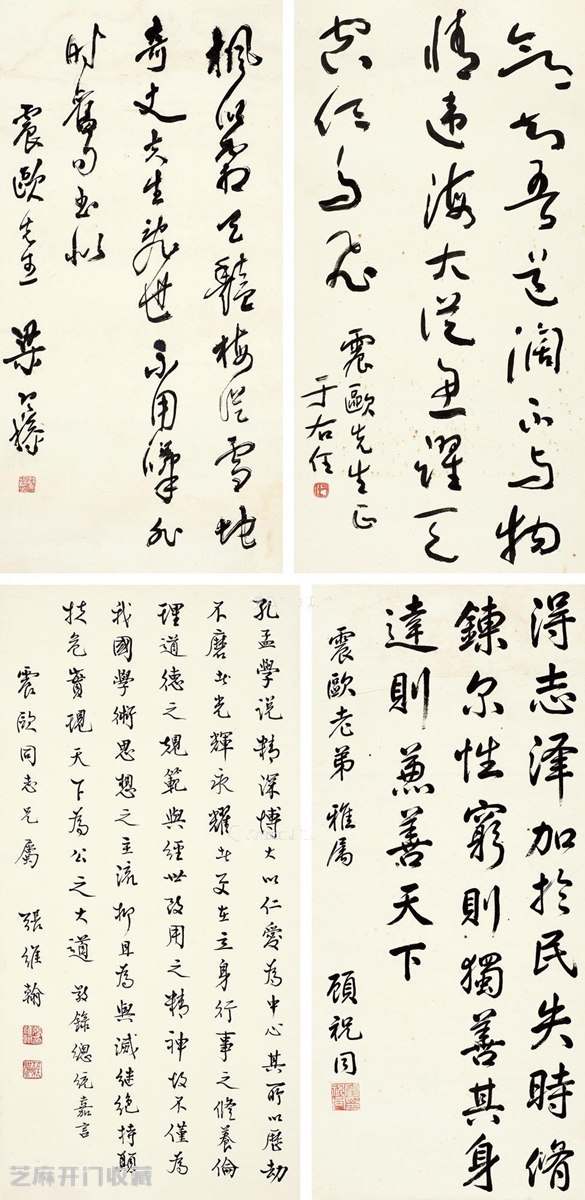 知吾道濶不与物
情违海大從魚躍天
空任鳥飛
震歐先生正
于右任
楓從霜天豔梅從雪地
奇丈夫生亂世不用嘆非
時舊句書似
震歐先生 梁寒操
得志泽加於民失時脩
鍊尔性窮則獨善其身
達則兼善天下
震歐老弟 雅属 顧祝同
孔孟學说精深博大以仁愛為中心其所以歷劫
不磨其光輝永耀者乃在立身行事之修養倫
理道德之規範與經世致用之精神故不僅為
我國學術思想之主流抑且為興滅継絶持顛
扶危實現天下為公之大道 敬錄總统嘉言
震歐同志兄属 張維翰
芝麻开门收藏